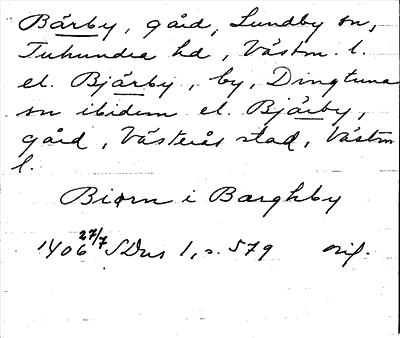 Bärby, gård, Lundby sn,
Tuhundra hd, Västm. l.
el. Bjärby, by, Dingtuna
sn ibidem el. Bjärby,
gård, Västerås stad, Västm
l.
Biorn i Barghby
1406 27/7 SDns 1, s. 579 orig.